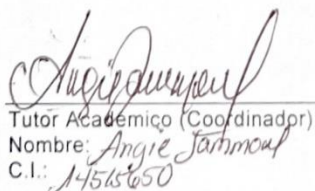 Tutor Académico (Coordinador)
Nombre: Angie Jammoul
C.I.: 14515650